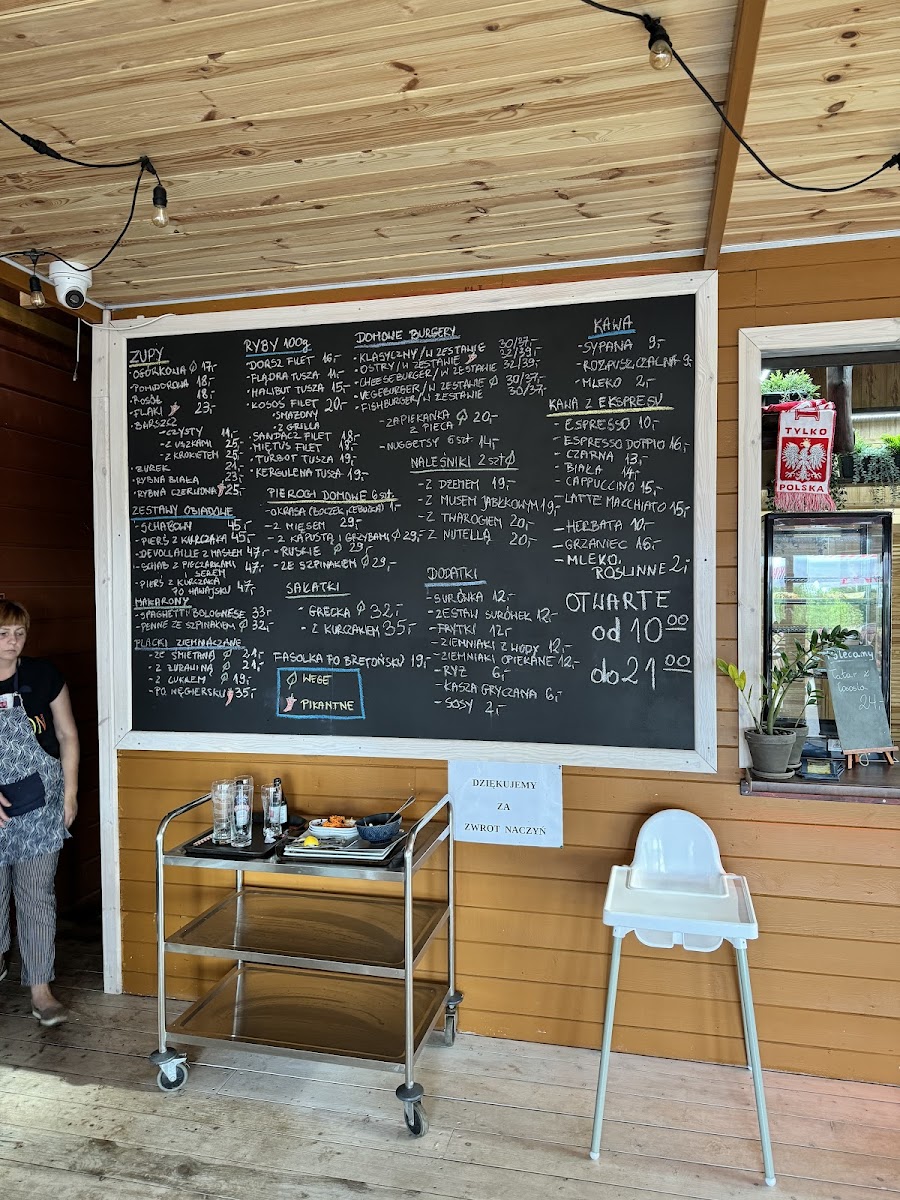 ZUPY
-OGÓRKOWA 17,-
-POMIDOROWA 18,-
-ROSÓŁ 18,-
-FLAKI 23,-
-BARSZCZ
-CZYSTY 11,-
-Z USZKAMI 25,-
-Z KROKIETEM 25,-
-ŻUREK 21,-
-RYBNA BIAŁA 23,-
-RYBNA CZERWONA 25,-
ZESTAWY OBIADOWE
-SCHABOWY 45,-
-PIERŚ Z KURCZAKA 45,-
-DEVOLLAILLE Z MASŁEM 47,-
-SCHAB Z PIECZARKAMI
SEREM 47,-
-PIERŚ Z KURCZAKA
PO HAWAJSKU 47,-
MAKARONY
-SPAGHETTI BOLOGNESE 33,-
-PENNE ZE SZPINAKIEM 32,-
PLACKI ZIEMNIACZANE
-ZE ŚMIETANĄ 21,-
-Z ŻURAWINĄ 21,-
-Z CUKREM 19,-
-PO WĘGIERSKU 35,-
RYBY 100g
-DORSZ FILET 16,-
-FLĄDRA TUSZA 11,-
-HALIBUT TUSZA 15,-
-ŁOSOŚ FILET 20,-
-SMAŻONY
-Z GRILLA
-SANDACZ FILET 18,-
-MIĘTUS FILET 18,-
-TURBOT TUSZA 19,-
-KERGULENA TUSZA 19,-
PIEROGI DOMOWE 6 szt.
-OKRASA (BOCZEK, CEBULKA) 1,-
-Z MIĘSEM 29,-
-Z KAPUSTĄ I GRZYBAMI 29,-
-RUSKIE 29,-
-ZE SZPINAKIEM 29,-
SAŁATKI
-GRECKA 32,-
-Z KURCZAKIEM 35,-
FASOLKA PO BRETOŃSKU 19,-
WEGE
PIKANTNE
DOMOWE BURGERY
-KLASYCZNY/W ZESTAWIE 30/37,-
-OSTRY/W ZESTAWIE 32/39,-
-CHEESEBURGER/W ZESTAWIE 32/39,-
-VEGEBURGER/W ZESTAWIE 30/37,-
-FISHBURGER/W ZESTAWIE 30/37,-
-ZAPIEKANKA 20,-
Z PIECA
-NUGGETSY 6 szt 14,-
NALEŚNIKI 2 szt
-Z DŻEMEM 19,-
-Z MUSEM JABŁKOWYM 19,-
-Z TWAROGIEM 20,-
-Z NUTELLĄ 20,-
DODATKI
-SURÓWKA 12,-
-ZESTAW SURÓWEK 12,-
-FRYTKI 12,-
-ZIEMNIAKI Z WODY 12,-
-ZIEMNIAKI OPIEKANE 12,-
-RYŻ 6,-
-KASZA GRYCZANA 6,-
-SOSY 2,-
KAWA
-SYPANA 9,-
-ROZPUSZCZALNA 9,-
-MLEKO 2,-
KAWA Z EKSPRESU
-ESPRESSO 10,-
-ESPRESSO DOPPIO 16,-
-CZARNA 13,-
-BIAŁA 14,-
-CAPPUCCINO 15,-
-LATTE MACCHIATO 15,-
-HERBATA 10,-
-GRZANIEC 16,-
-MLEKO
ROŚLINNE 2,-
OTWARTE
od 10 00
do 21 00
TYLKO
POLSKA
Polecamy
Tatar z
łososia
24,-
DZIĘKUJEMY
ZA
ZWROT NACZYŃ